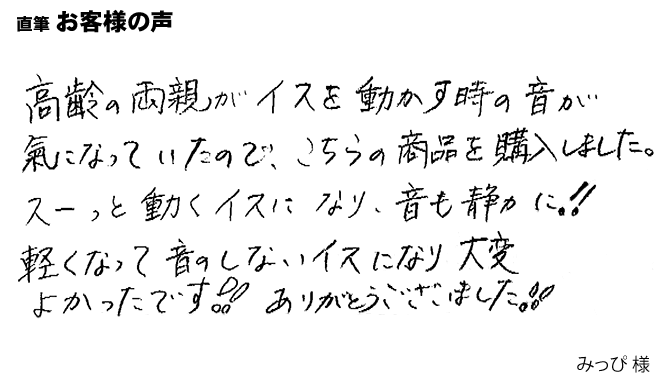 直筆 お客様の声
高齢の両親がイスを動かす時の音が
氣になっていたので、こちらの商品を購入しました。
スーっと動くイスになり、音も静かに!!
軽くなって音のしないイスになり大変
よかったです!! ありがとうございました!!
みっぴ 様